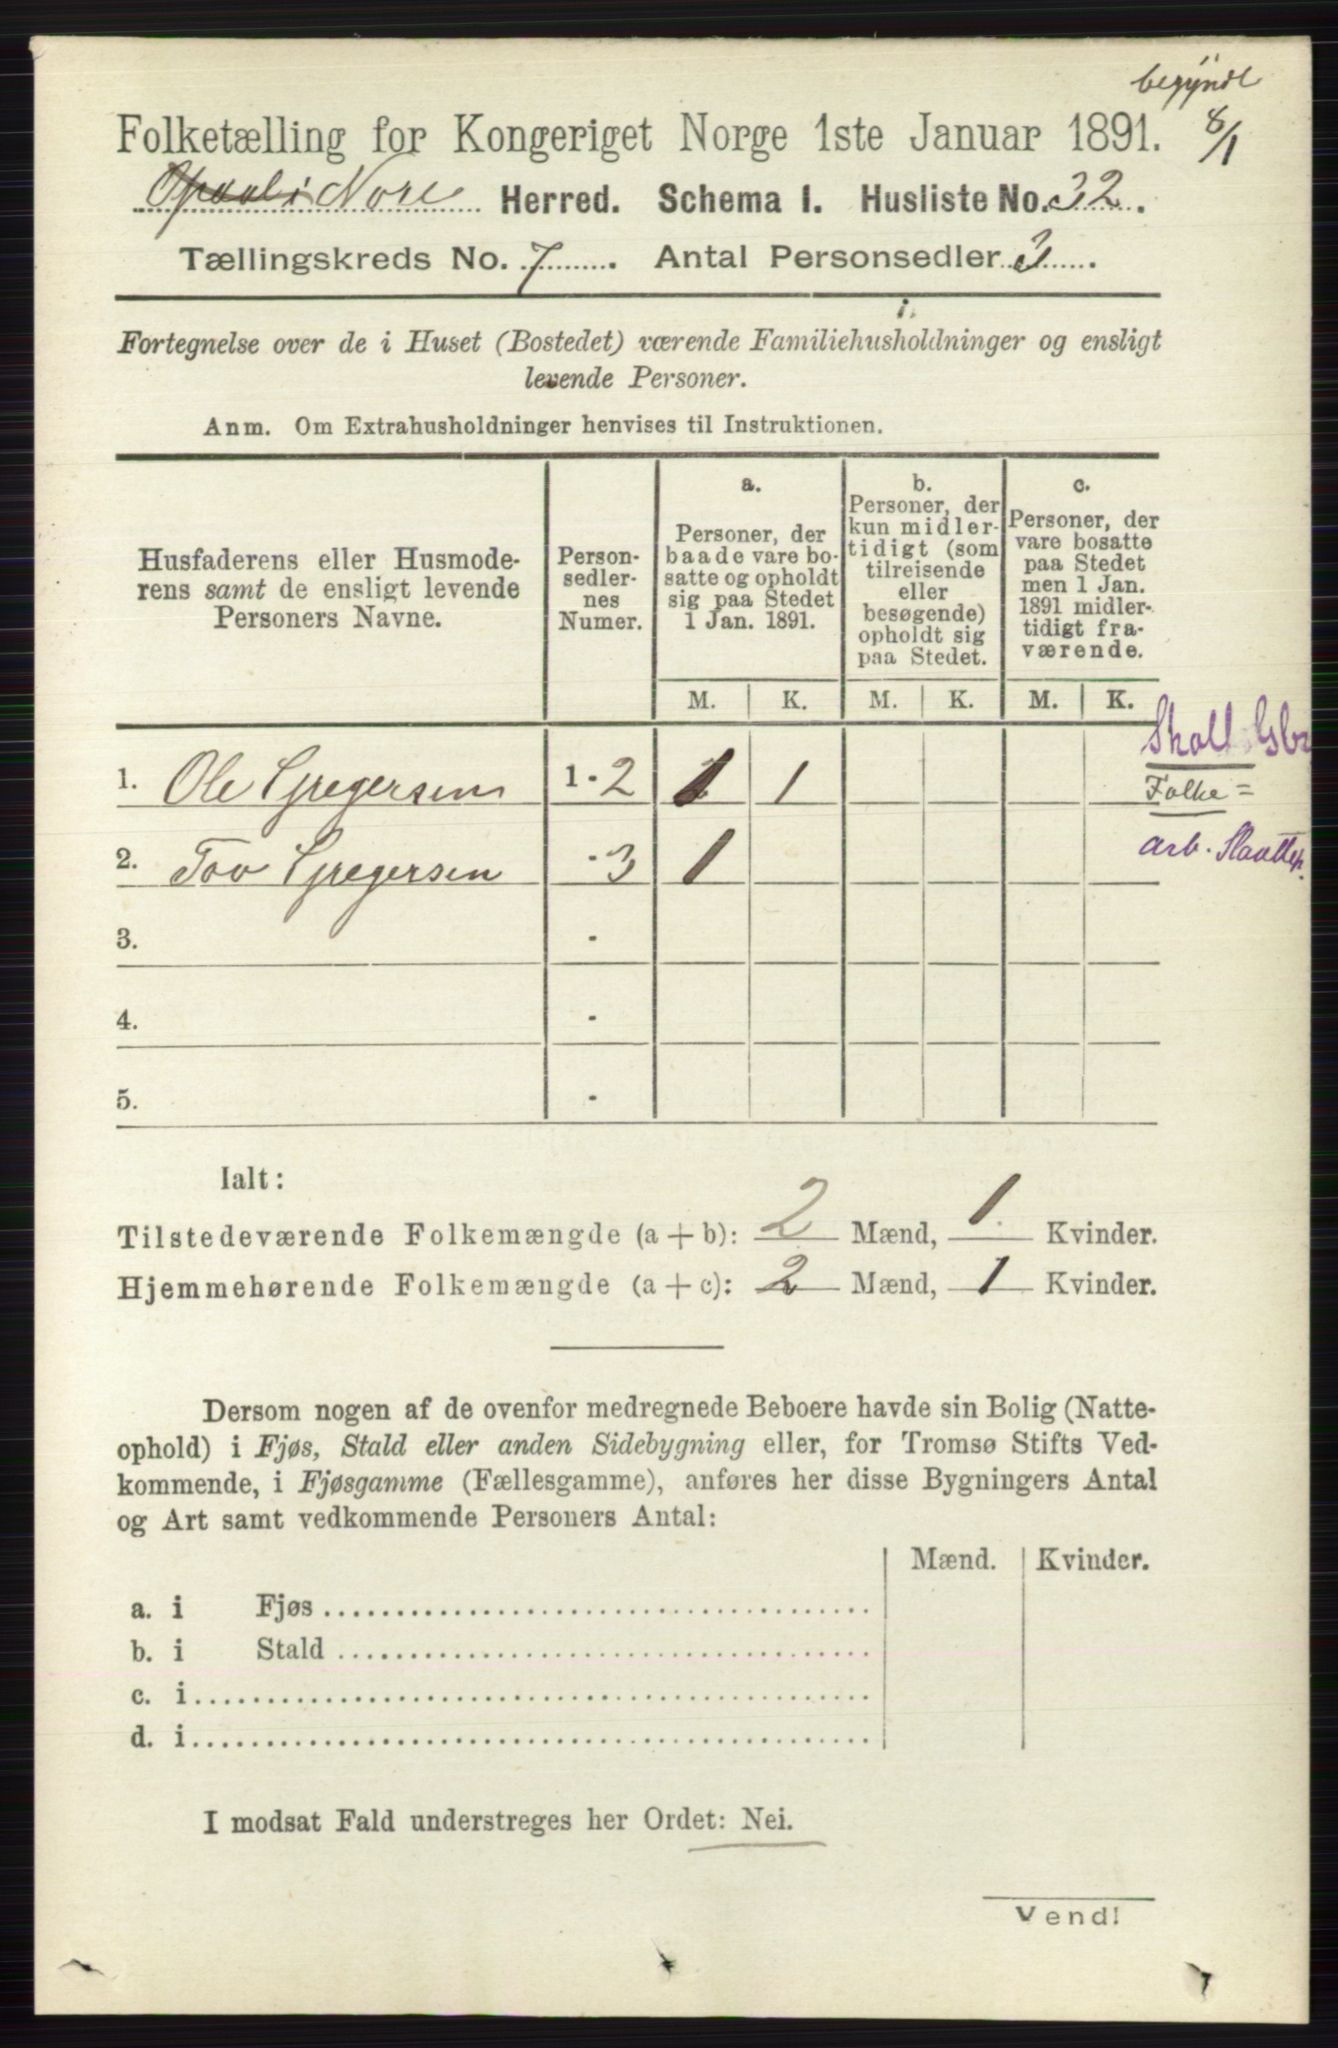 begyndt
Folketælling for Kongeriget Norge 1ste Januar 1891. 8/1
Nore Herred. Schema I. Husliste No. 32.
Tællingskreds No. 7. Antal Personsedler 3.
Fortegnelse over de i Huset (Bostedet) værende Familiehusholdninger og ensligt
levende Personer.
Anm. Om Extrahusholdninger henvises til Instruktionen.
Husfaderens eller Husmode-
rens samt de ensligt levende
Personers Navne.
Person-
sedler-
nes
Numer.
a.
Personer, der
baade vare bo-
satte og opholdt
sig paa Stedet
1 Jan. 1891.
b.
Personer, der
kun midler-
tidigt (som
tilreisende
eller
besøgende)
opholdt sig
paa Stedet.
c.
Personer, der
vare bosatte
paa Stedet
men 1 Jan.
1891 midler-
tidigt fra-
værende.
M. K. M. K. M. K.
1. Ole Gregersen 1 - 2 1 1
Folke =
2. Tov Gregersen - 3 1
arb.
3. -
4. -
5. -
Ialt:
Tilstedeværende Folkemængde (a + b): 2 Mænd, 1 Kvinder.
Hjemmehørende Folkemængde (a + c): 2 Mænd, 1 Kvinder.
Dersom nogen af de ovenfor medregnede Beboere havde sin Bolig (Natte-
ophold) i Fjøs, Stald eller anden Sidebygning eller, for Tromsø Stifts Ved-
kommende, i Fjøsgamme (Fællesgamme), anføres her disse Bygningers Antal
og Art samt vedkommende Personers Antal:
Mænd. Kvinder.
a. i Fjøs
b. i Stald
c. i
d. i
I modsat Fald understreges her Ordet: Nei.
Vend!